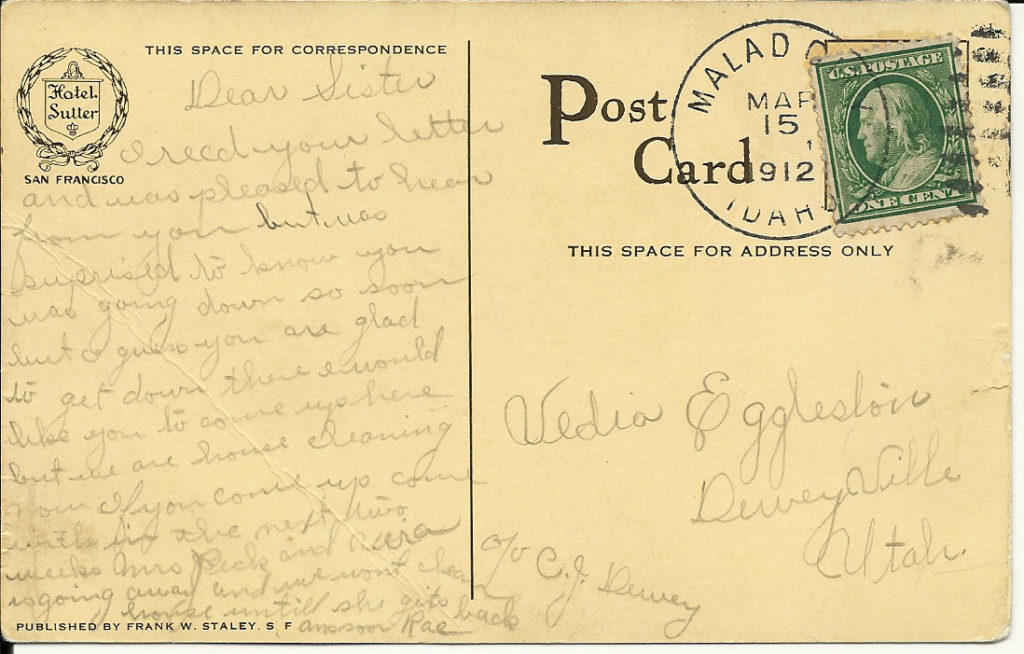 THIS SPACE FOR CORRESPONDENCE
Hotel
Sutter
SAN FRANCISCO
Dear Sister
I recd your letter
and was pleased to hear
from you but was
suprised to know you
was going down so soon
but I guess you are glad
to get down there I would
like you to come up here
but we are house cleaning
now If you come up come
with in the next two
weeks Mrs Peck and Vera
is going away and we wont clean
house untill she gits back
ans soon Rae
PUBLISHED BY FRANK W. STALEY. S F
Post
Card
MALAD
MAR
15
1912
IDAHO
U.S. POSTAGE
ONE CENT
THIS SPACE FOR ADDRESS ONLY
Vedia Eggleston
Dewey Ville
Utah.
c/o C.J. Dewey